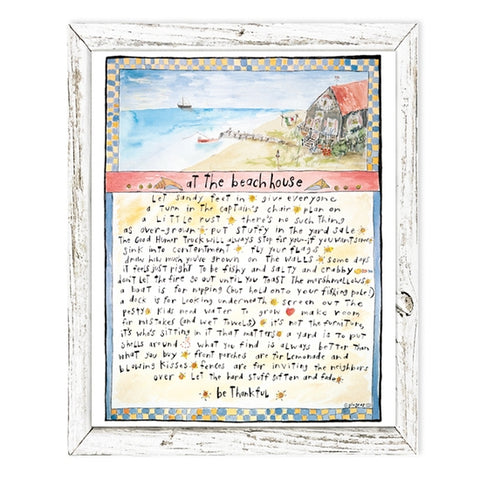 at the beach house
Let sandy feet in give everyone
a turn in the captain's chair plan on
a little rust there's no such thing
as over-grown put stuffy in the yard sale
The Good Humor Truck will always stop for you-if you want some
sink into contentment fly your flags
draw how much you've grown on the walls some days
it feels just right to be fishy and salty and crabby
don't let the fire go out until you toast the marshmallows
a boat is for napping (but hold onto your fishing pole!)
a dock is for looking underneath screen out the
pesty kids need water to grow make room
for mistakes (and wet towels) it's not the furniture,
it's who's sitting in it that matters a yard is to put
shells around what you find is always better than
what you buy front porches are for lemonade and
blowing kisses fences are for inviting the neighbors
over Let the hard stuff soften and fade
be thankful